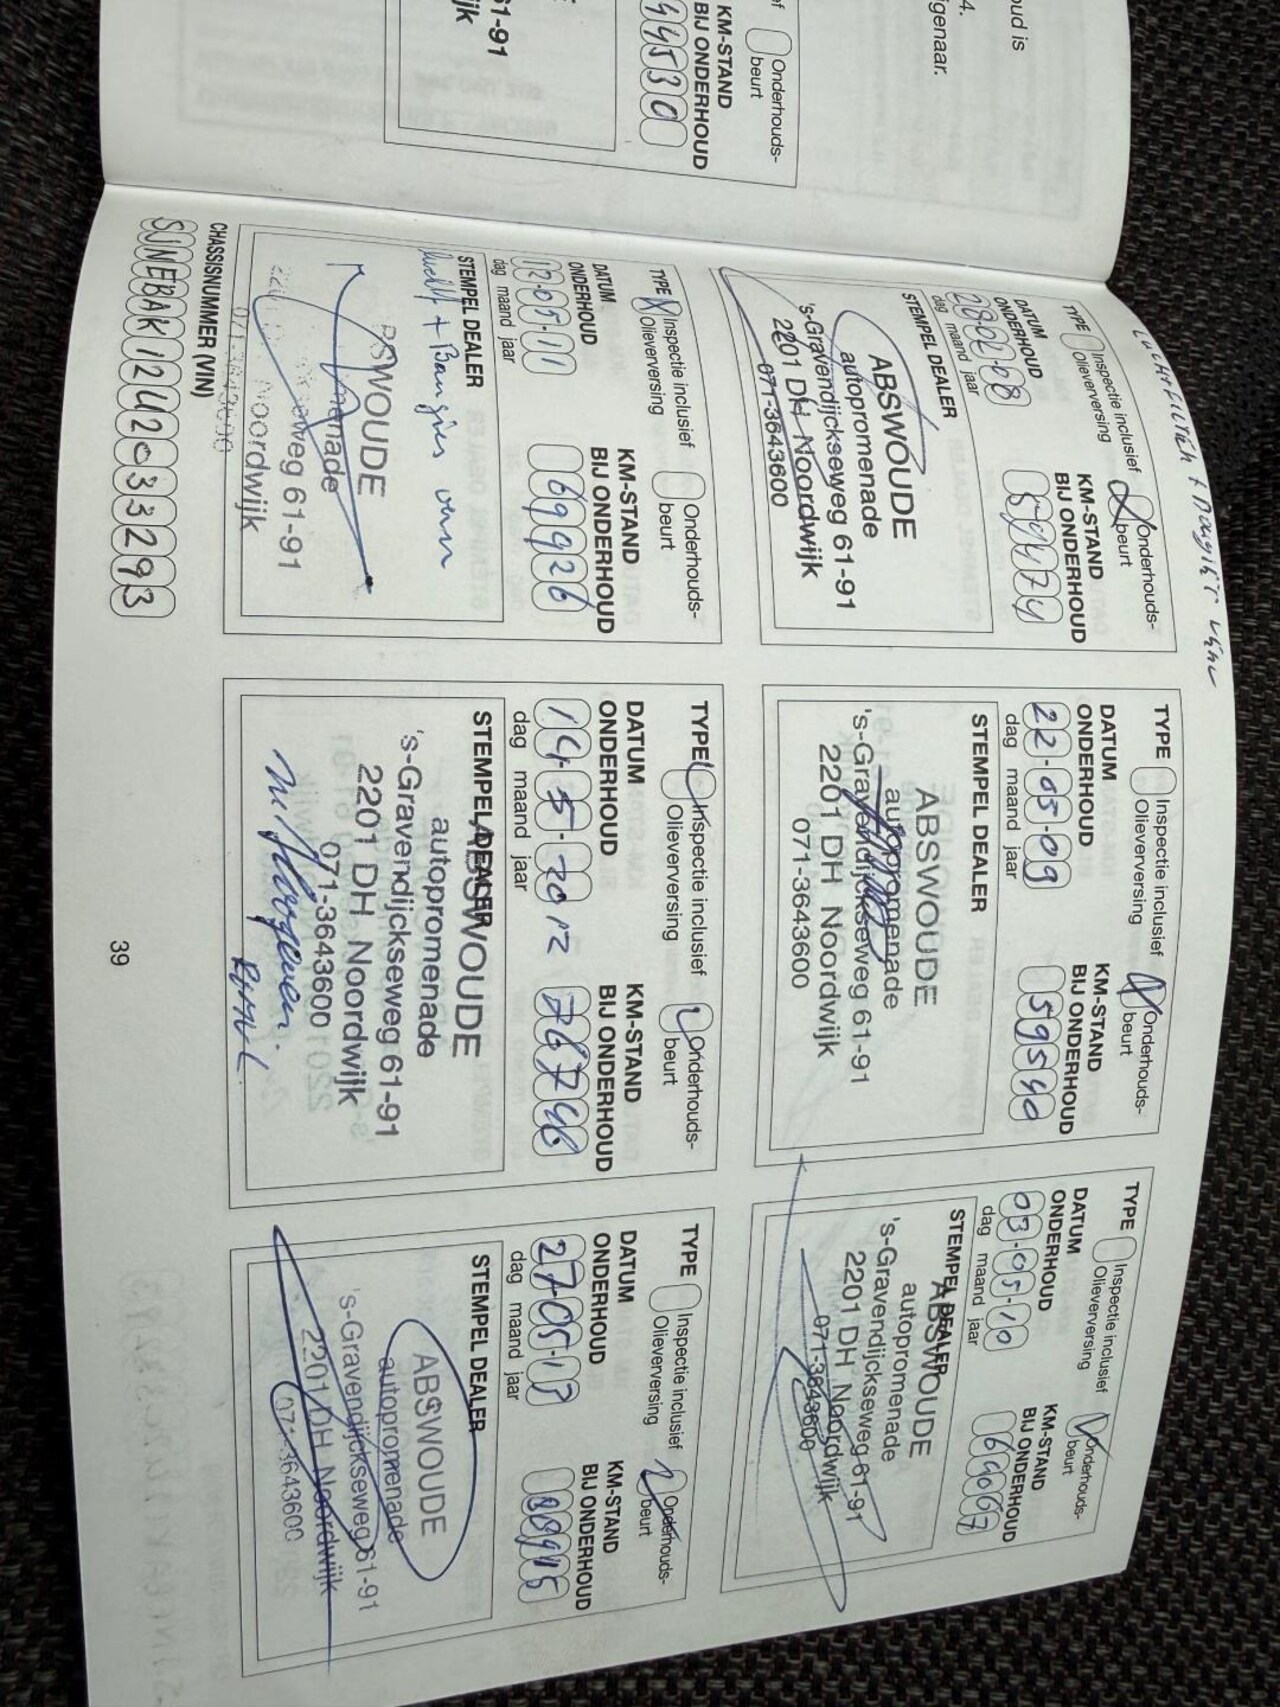 oud is
4.
igenaar.
Onderhouds-
beurt
KM-STAND
BIJ ONDERHOUD
44530
61-91
jk
LUCHTFILTER +
TYPE
Inspectie inclusief
Olieverversing
Onderhouds-
beurt
DATUM
ONDERHOUD
KM-STAND
BIJ ONDERHOUD
dag maand jaar
STEMPEL DEALER
ABSWOUDE
autopromenade
's-Gravendijckseweg 61-91
2201 DH Noordwijk
071-3643600
TYPE
Inspectie inclusief
Olieverversing
Onderhouds-
beurt
DATUM
ONDERHOUD
22-05-09
KM-STAND
BIJ ONDERHOUD
59540
dag maand jaar
STEMPEL DEALER
ABSWOUDE
autopromenade
's-Gravendijckseweg 61-91
2201 DH Noordwijk
071-3643600
TYPE
Inspectie inclusief
Olieverversing
Onderhouds-
beurt
DATUM
ONDERHOUD
03-05-10
KM-STAND
BIJ ONDERHOUD
dag maand jaar
STEMPEL DEALER
ABSWOUDE
autopromenade
's-Gravendijckseweg 61-91
2201 DH Noordwijk
071-3643600
TYPE
Inspectie inclusief
Olieverversing
Onderhouds-
beurt
DATUM
ONDERHOUD
12-05-11
KM-STAND
BIJ ONDERHOUD
69926
dag maand jaar
STEMPEL DEALER
SWOUDE
weg 61-91
Noordwijk
TYPE
Inspectie inclusief
Olieverversing
Onderhouds-
beurt
DATUM
ONDERHOUD
14-5-2012
KM-STAND
BIJ ONDERHOUD
76746
dag maand jaar
STEMPEL DEALER
ABSWOUDE
autopromenade
's-Gravendijckseweg 61-91
2201 DH Noordwijk
071-3643600
TYPE
Inspectie inclusief
Olieverversing
Onderhouds-
beurt
DATUM
ONDERHOUD
27-05-13
KM-STAND
BIJ ONDERHOUD
dag maand jaar
STEMPEL DEALER
ABSWOUDE
autopromenade
's-Gravendijckseweg 61-91
2201 DH Noordwijk
071-3643600
CHASSISNUMMER (VIN)
SJNEBAK12U2033293
39